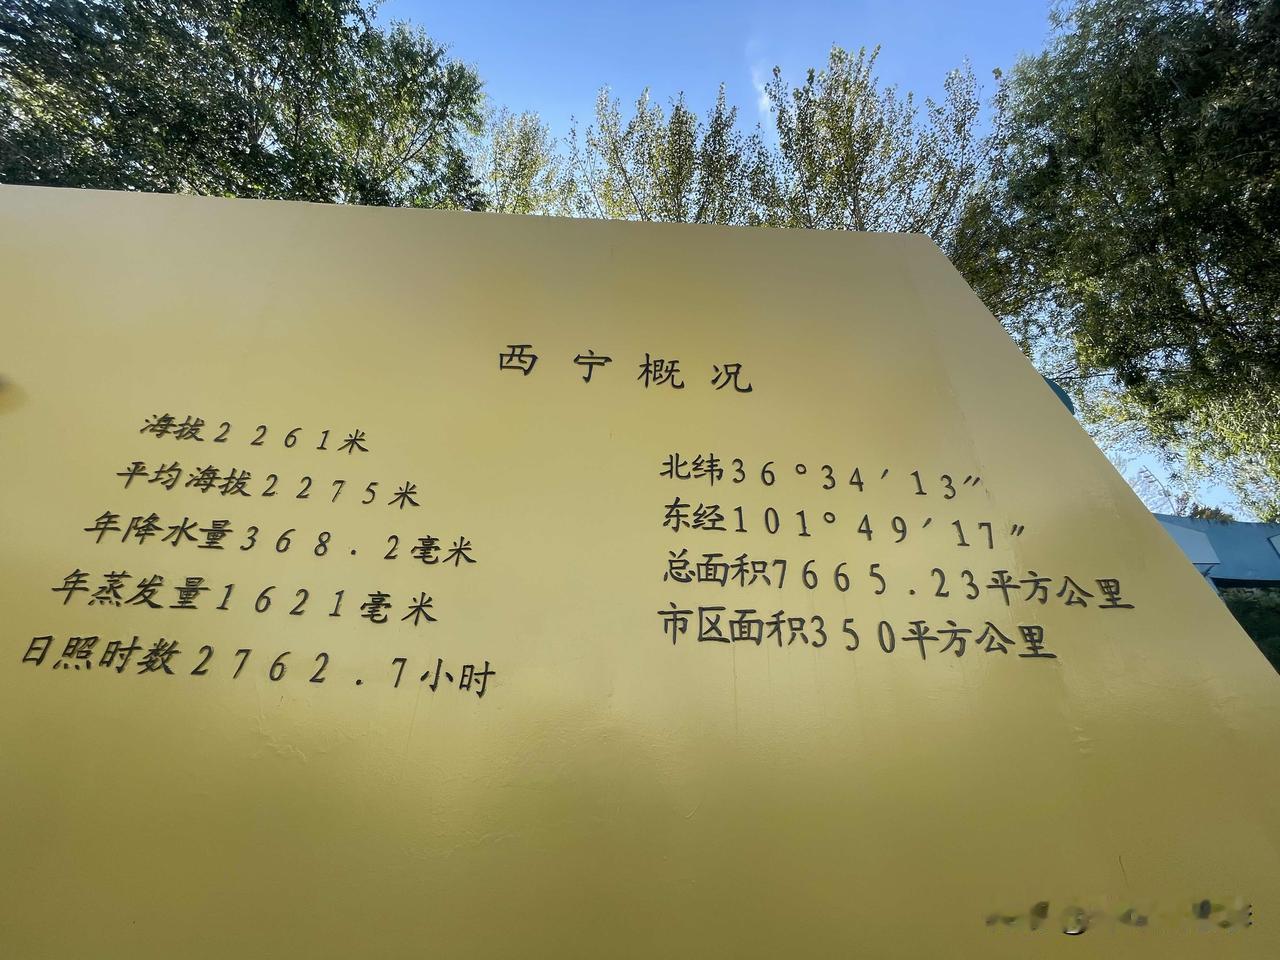 西宁概况
海拔2261米
平均海拔2275米
年降水量368.2毫米
年蒸发量1621毫米
日照时数2762.7小时
北纬36°34′13″
东经101°49′17″
总面积7665.23平方公里
市区面积350平方公里